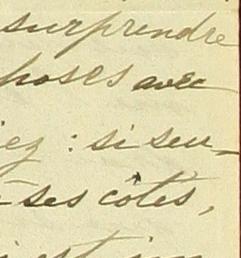 surprendre
poses avec
iez : si seu-
à ses côtés,